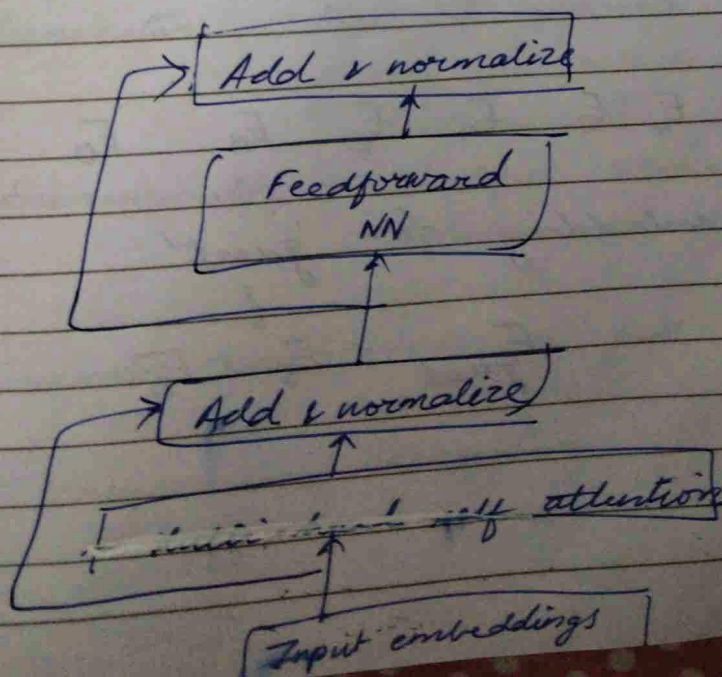 Add & normalize
Feedforward
NN
Add & normalize
self attention
Input embeddings